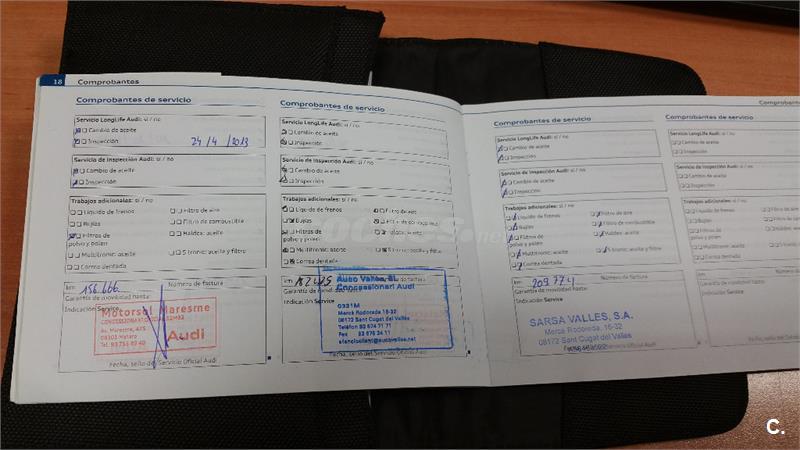 18 Comprobantes
Comprobantes de servicio
Servicio LongLife Audi: sí / no
Cambio de aceite
Inspección 24/4/2013
Servicio de Inspección Audi: sí / no
Cambio de aceite
Inspección
Trabajos adicionales: sí / no
Líquido de frenos Filtro de aire
Bujías Filtro de combustible
Filtros de polvo y polen Haldex: aceite
Multitronic: aceite S tronic: aceite y filtro
Correa dentada
km Número de factura
156.666
Garantía de movilidad hasta:
Indicación Service
Motorsol Maresme
CONCESSIONARI OFICIAL
Av. Maresme,
08303 Mataró
Audi
Fecha, sello del Servicio Oficial Audi
Comprobantes de servicio
Servicio LongLife Audi: sí / no
Cambio de aceite
Inspección
Servicio de Inspección Audi: sí / no
Cambio de aceite
Inspección
Trabajos adicionales: sí / no
Líquido de frenos Filtro de aire
Bujías
Filtros de polvo y polen Haldex: aceite
Multitronic: aceite S tronic: aceite y filtro
Correa dentada
km
Garantía de movilidad
Indicación Service
Auto Vallès, SL
Concessionari Audi
0331M
Mercè Rodoreda, 16-32
08172 Sant Cugat del Vallès
Telèfon 93 674 71 71
Fax
Fecha, sello del Servicio Oficial Audi
Comprobantes de servicio
Servicio LongLife Audi: sí / no
Cambio de aceite
Inspección
Servicio de Inspección Audi: sí / no
Cambio de aceite
Inspección
Trabajos adicionales: sí / no
Líquido de frenos Filtro de aire
Bujías Filtro de combustible
Filtros de polvo y polen Haldex: aceite
Multitronic: aceite S tronic: aceite y filtro
Correa dentada
km 209.774 Número de factura
Garantía de movilidad hasta:
Indicación Service
SARSA VALLES, S.A.
Merce Rodoreda, 16-32
08172 Sant Cugat del Valles
Servicio Oficial Audi
Comprobantes de servicio
Servicio LongLife Audi: sí / no
Cambio de aceite
Inspección
Servicio de Inspección Audi: sí / no
Cambio de aceite
Inspección
Trabajos adicionales: sí / no
Líquido de frenos
Bujías
Filtros de polvo y polen
Multitronic: aceite
Correa dentada
km
Garantía de movilidad hasta:
Indicación Service
C.